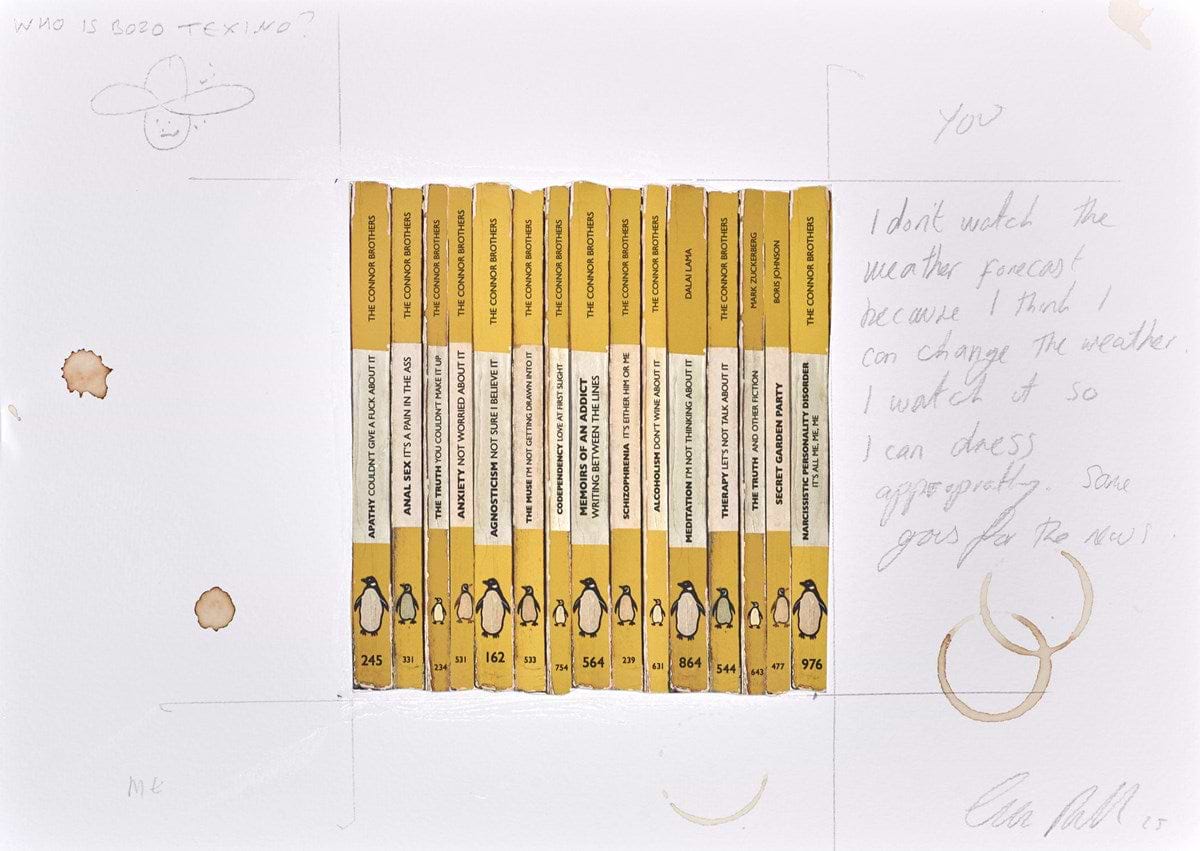 WHO IS BOZO TEXINO?
YOU
I don't watch the
weather forecast
because I think I
can change the weather.
I watch it so
I can dress
appropriatly. Same
goes for the news.
THE CONNOR BROTHERS
APATHY COULDN'T GIVE A FUCK ABOUT IT
245
THE CONNOR BROTHERS
ANAL SEX IT'S A PAIN IN THE ASS
331
THE CONNOR BROTHERS
THE TRUTH YOU COULDN'T MAKE IT UP
234
THE CONNOR BROTHERS
ANXIETY NOT WORRIED ABOUT IT
531
THE CONNOR BROTHERS
AGNOSTICISM NOT SURE I BELIEVE IT
162
THE CONNOR BROTHERS
THE MUSE I'M NOT GETTING DRAWN INTO IT
533
THE CONNOR BROTHERS
CODEPENDENCY LOVE AT FIRST SLIGHT
754
THE CONNOR BROTHERS
MEMOIRS OF AN ADDICT
WRITING BETWEEN THE LINES
564
THE CONNOR BROTHERS
SCHIZOPHRENIA IT'S EITHER HIM OR ME
239
THE CONNOR BROTHERS
ALCOHOLISM DON'T WINE ABOUT IT
631
DALAI LAMA
MEDITATION I'M NOT THINKING ABOUT IT
864
THE CONNOR BROTHERS
THERAPY LET'S NOT TALK ABOUT IT
544
MARK ZUCKERBERG
THE TRUTH AND OTHER FICTION
643
BORIS JOHNSON
SECRET GARDEN PARTY
477
THE CONNOR BROTHERS
NARCISSISTIC PERSONALITY DISORDER
IT'S ALL ME, ME, ME
976
ME
25